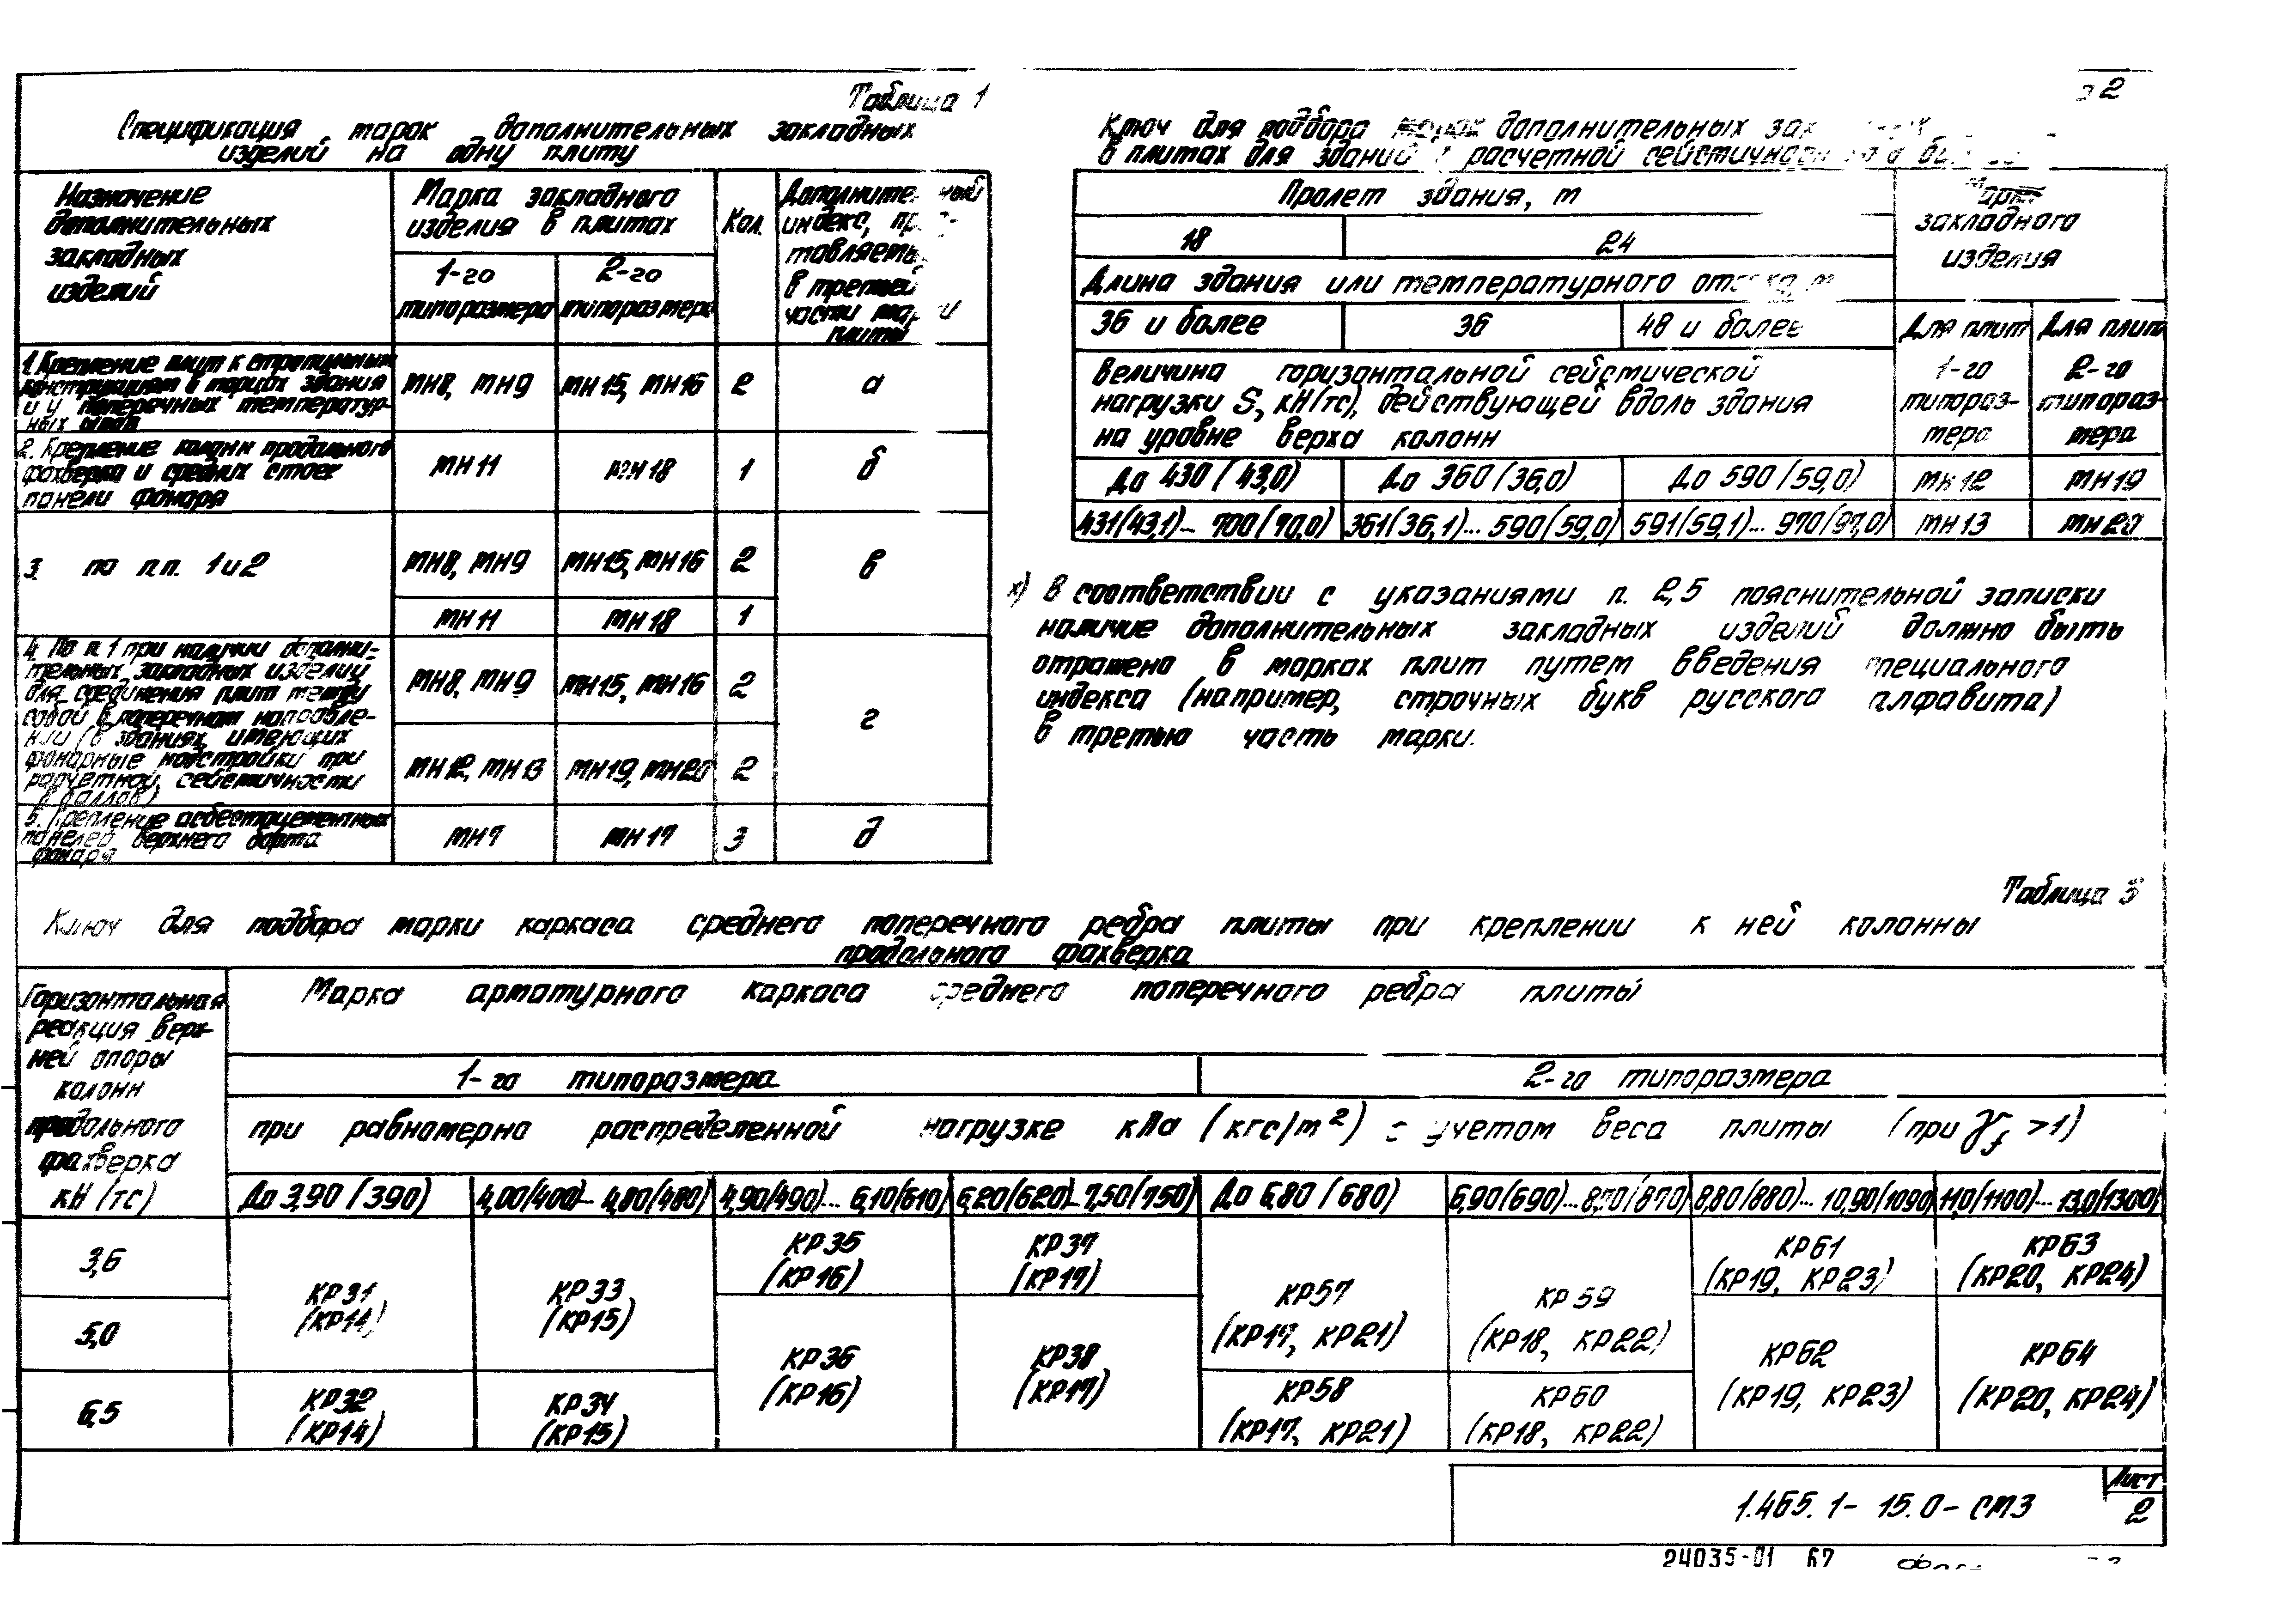 Таблица 1
Спецификация марок дополнительных закладных
изделий на одну плиту
Назначение
дополнительных
закладных
изделий
Марка закладного
изделия в плитах
1-го
типоразмера
2-го
типоразмера
Кол.
индекс,
в третьей
части
плиты
1. Крепление плит к стропильным
конструкциям в торцах здания
и у поперечных температур-
ных швов
МН8, МН9
МН15, МН16
2
а
2. Крепление колонн продольного
фахверка и средних стоек
панели фонаря
МН11
МН18
1
б
3. по п.п. 1 и 2
МН8, МН9
МН15, МН16
2
в
МН11
МН18
1
4. По п. 1 при наличии дополни-
тельных закладных изделий
для соединения плит между
собой в поперечном направле-
нии (в зданиях, имеющих
фонарные надстройки при
расчетной сейсмичности
баллов)
МН8, МН9
МН15, МН16
2
г
МН12, МН13
МН19, МН20
2
5. Крепление асбестоцементных
панелей верхнего борта
фонаря
МН7
МН17
3
д
2
Ключ для подбора марок дополнительных
в плитах для зданий с расчетной
Пролет здания, м
18
24
Длина здания или температурного
36 и более
36
48 и более
Марка
закладного
изделия
Для плит
1-го
типораз-
мера
Для плит
2-го
типораз-
мера
Величина горизонтальной сейсмической
нагрузки S, кН(тс), действующей вдоль здания
на уровне верха колонн
До 430 (43,0)
До 360 (36,0)
До 590 (59,0)
МН12
МН19
431(43,1)... 700(70,0)
361(36,1)... 590(59,0)
591(59,1)... 970(97,0)
МН13
МН20
х) В соответствии с указаниями п. 2,5 пояснительной записки
наличие дополнительных закладных изделий должно быть
отражено в марках плит путем введения специального
индекса (например, строчных букв русского алфавита)
в третью часть марки.
Таблица 3
Ключ для подбора марки каркаса среднего поперечного ребра плиты при креплении к ней колонны
продольного фахверка
Горизонтальная
реакция верх-
ней опоры
колонн
продольного
фахверка
кН (тс)
Марка арматурного каркаса среднего поперечного ребра плиты
1-го типоразмера
2-го типоразмера
при равномерно распределенной нагрузке кПа (кгс/м²) с учетом веса плиты (при γf >1)
До 3,90 (390)
4,00(400)... 4,80(480)
4,90(490)... 6,10(610)
6,20(620)... 7,50(750)
До 6,80 (680)
6,90(690)... 8,70(870)
8,80(880)... 10,90(1090)
11,0(1100)... 13,0(1300)
3,6
5,0
6,5
КР31
(КР14)
КР33
(КР15)
КР35
(КР16)
КР37
(КР17)
КР57
(КР17, КР21)
КР59
(КР18, КР22)
КР61
(КР19, КР23)
КР63
(КР20, КР24)
КР36
(КР16)
КР38
(КР17)
КР62
(КР19, КР23)
КР64
(КР20, КР24)
КР32
(КР14)
КР34
(КР15)
КР58
(КР17, КР21)
КР60
(КР18, КР22)
1.465.1-15.0-СМ3
Лист
2
24035-01 67